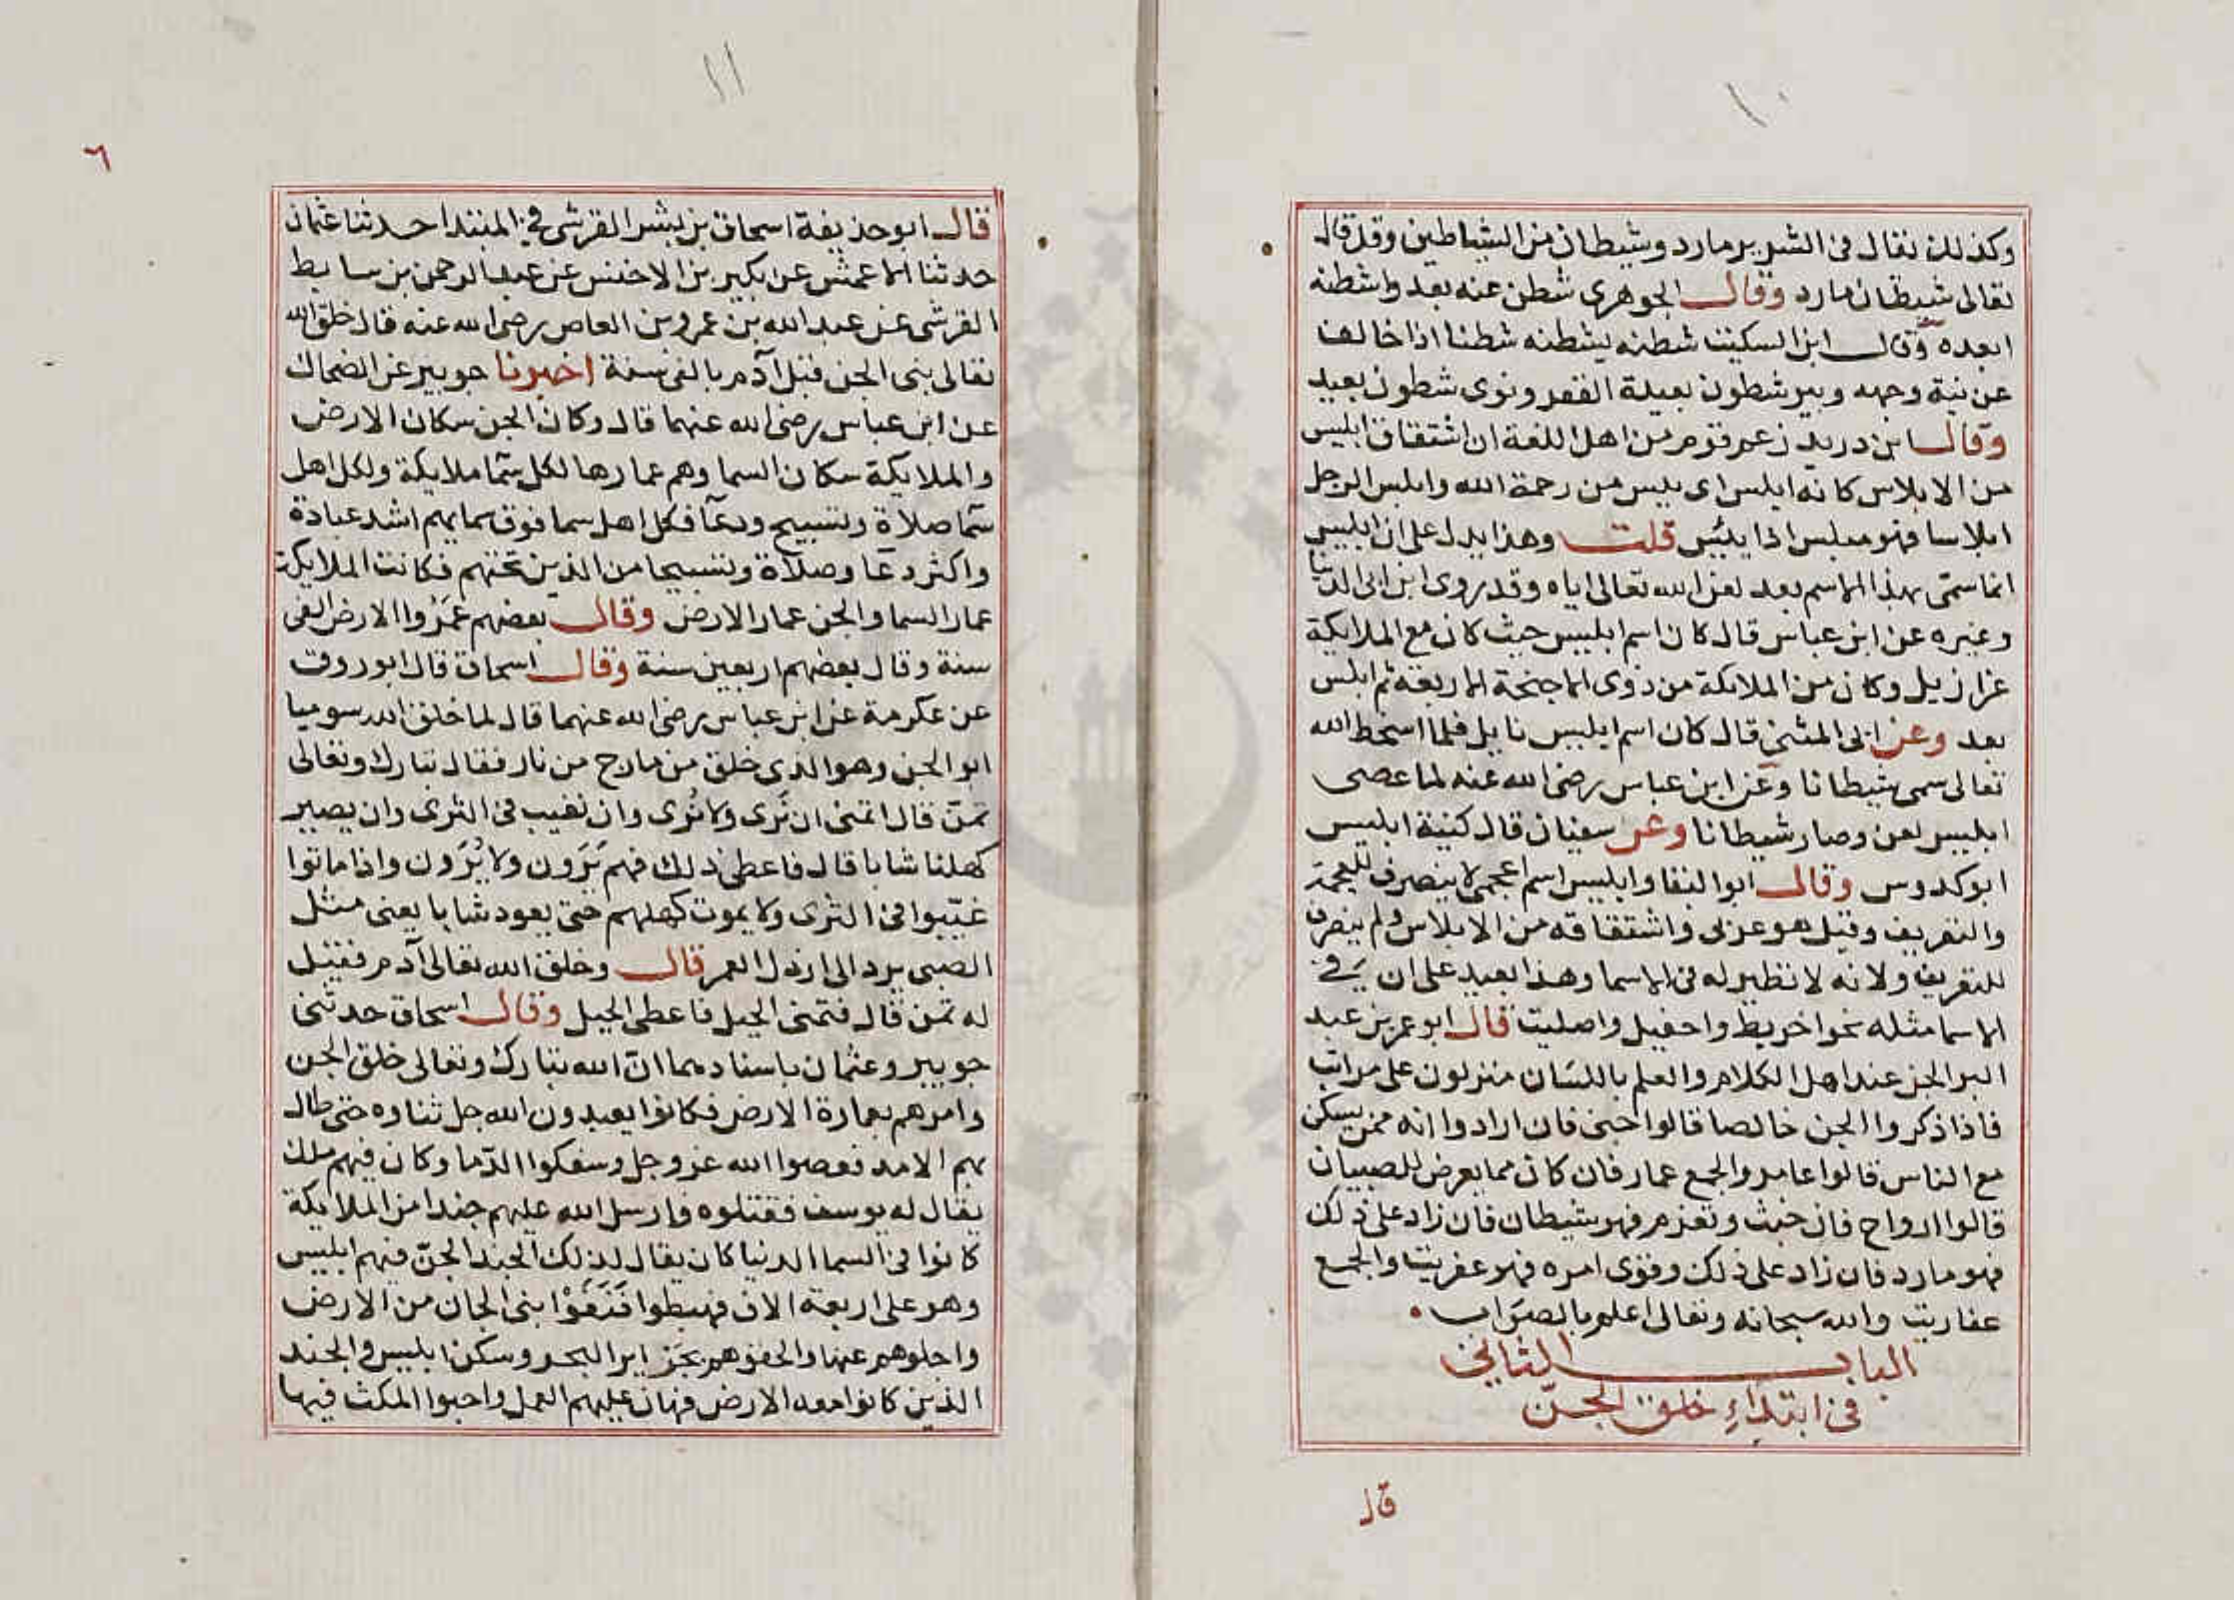 ١٠
وكذلك نقال فى الشرير مارد وشيطان من الشياطين وقد قال
تعالى شيطان مارد وقال الجوهرى شطن عنه بعد واشطنه
ابعده وقال ابن السكيت شطنه يشطنه شطنا اذا خالف
عن نية وجهه وبير شطون بعيدة القعر ونوى شطون بعيد
وقال ابن دريد زعم قوم من اهل اللغة ان اشتقاق ابليس
من الابلاس كانه ابلس اى يئس من رحمة الله وابلس الرجل
ابلاسا فهو مبلس اذا يئس قلت وهذا يدل على ان ابليس
انما سمى بهذا الاسم بعد لعن الله تعالى اياه وقد روى ابن ابى الدنيا
وغيره عن ابن عباس قال كان اسم ابليس حيث كان مع الملايكة
عزازيل وكان من الملائكة من ذوى الاجنحة الاربعة ثم ابلس
بعد وعن ابى المثنى قال كان اسم ابليس نايل فلما اسخط الله
تعالى سمى شيطانا وعن ابن عباس رضى الله عنه لما عصى
ابليس لعن وصار شيطانا وعن سفيان قال كنية ابليس
ابوكدوس وقال ابو البقا وابليس اسم اعجمى لا ينصرف للعجمة
والتعريف وقيل هو عربى واشتقاقه من الابلاس ولم ينصرف
للتعريف ولانه لا نظير له فى الاسما وهذا بعيد على ان فى
الاسما مثله نحو اخريط واحفيل واصليت قال ابو عمر بن عبد
البر الجن عند اهل الكلام والعلم باللسان منزلون على مراتب
فاذا ذكروا الجن خالصا قالوا جنى فان ارادوا انه ممن يسكن
مع الناس قالوا عامر والجمع عمار فان كان مما يعرض للصبيان
قالوا ارواح فان خبث وتعزم فهو شيطان فان زاد على ذلك
فهو مارد فان زاد على ذلك وقوى امره فهو عفريت والجمع
عفاريت والله سبحانه وتعالى اعلم بالصواب
الباب الثانى
فى ابتداء خلق الجن
قال
١١
٦
قال ابو حذيفة اسحاق بن بشر القرشى فى المبتدا حدثنا عثمان
حدثنا الاعمش عن بكير بن الاخنس عن عبد الرحمن بن سابط
القرشى عن عبد الله بن عمرو بن العاص رضى الله عنه قال خلق الله
تعالى بنى الجن قبل آدم بالفى سنة اخبرنا جويبر عن الضحاك
عن ابن عباس رضى الله عنهما قال وكان الجن سكان الارض
والملايكة سكان السما وهم عمارها لكل سما ملايكة ولكل اهل
سما صلاة وتسبيح ودعا فكل اهل سما فوق سمايهم اشد عبادة
واكثر دعا وصلاة وتسبيحا من الذين تحتهم فكانت الملايكة
عمار السما والجن عمار الارض وقال بعضهم عمروا الارض الفى
سنة وقال بعضهم اربعين سنة وقال اسحاق قال ابو روق
عن عكرمة عن ابن عباس رضى الله عنهما قال لما خلق الله سوميا
ابو الجن وهو الذى خلق من مارج من نار فقال تبارك وتعالى
تمن قال اتمنى ان نرى ولا نرى وان نغيب فى الثرى وان يصير
كهلنا شابا قال فاعطى ذلك فهم يرون ولا يرون واذا ماتوا
غيبوا فى الثرى ولا يموت كهلهم حتى يعود شابا يعنى مثل
الصبى يرد الى ارذل العمر قال وخلق الله تعالى آدم فقيل
له تمن قال فتمنى الحيل فاعطى الحيل وقال اسحاق حدثنى
جويبر وعثمان باسنادهما ان الله تبارك وتعالى خلق الجن
وامرهم بعمارة الارض فكانوا يعبدون الله جل ثناوه حتى طال
بهم الامد فعصوا الله عز وجل وسفكوا الدما وكان فيهم ملك
يقال له يوسف فقتلوه فارسل الله عليهم جندا من الملايكة
كانوا فى السما الدنيا كان يقال لذلك الجند الجن فيهم ابليس
وهو على اربعة الاف فهبطوا بنى الجان من الارض
واجلوهم عنها والحقوهم بجزاير البحر وسكن ابليس والجند
الذين كانوا معه الارض فهان عليهم العمل واحبوا المكث فيها